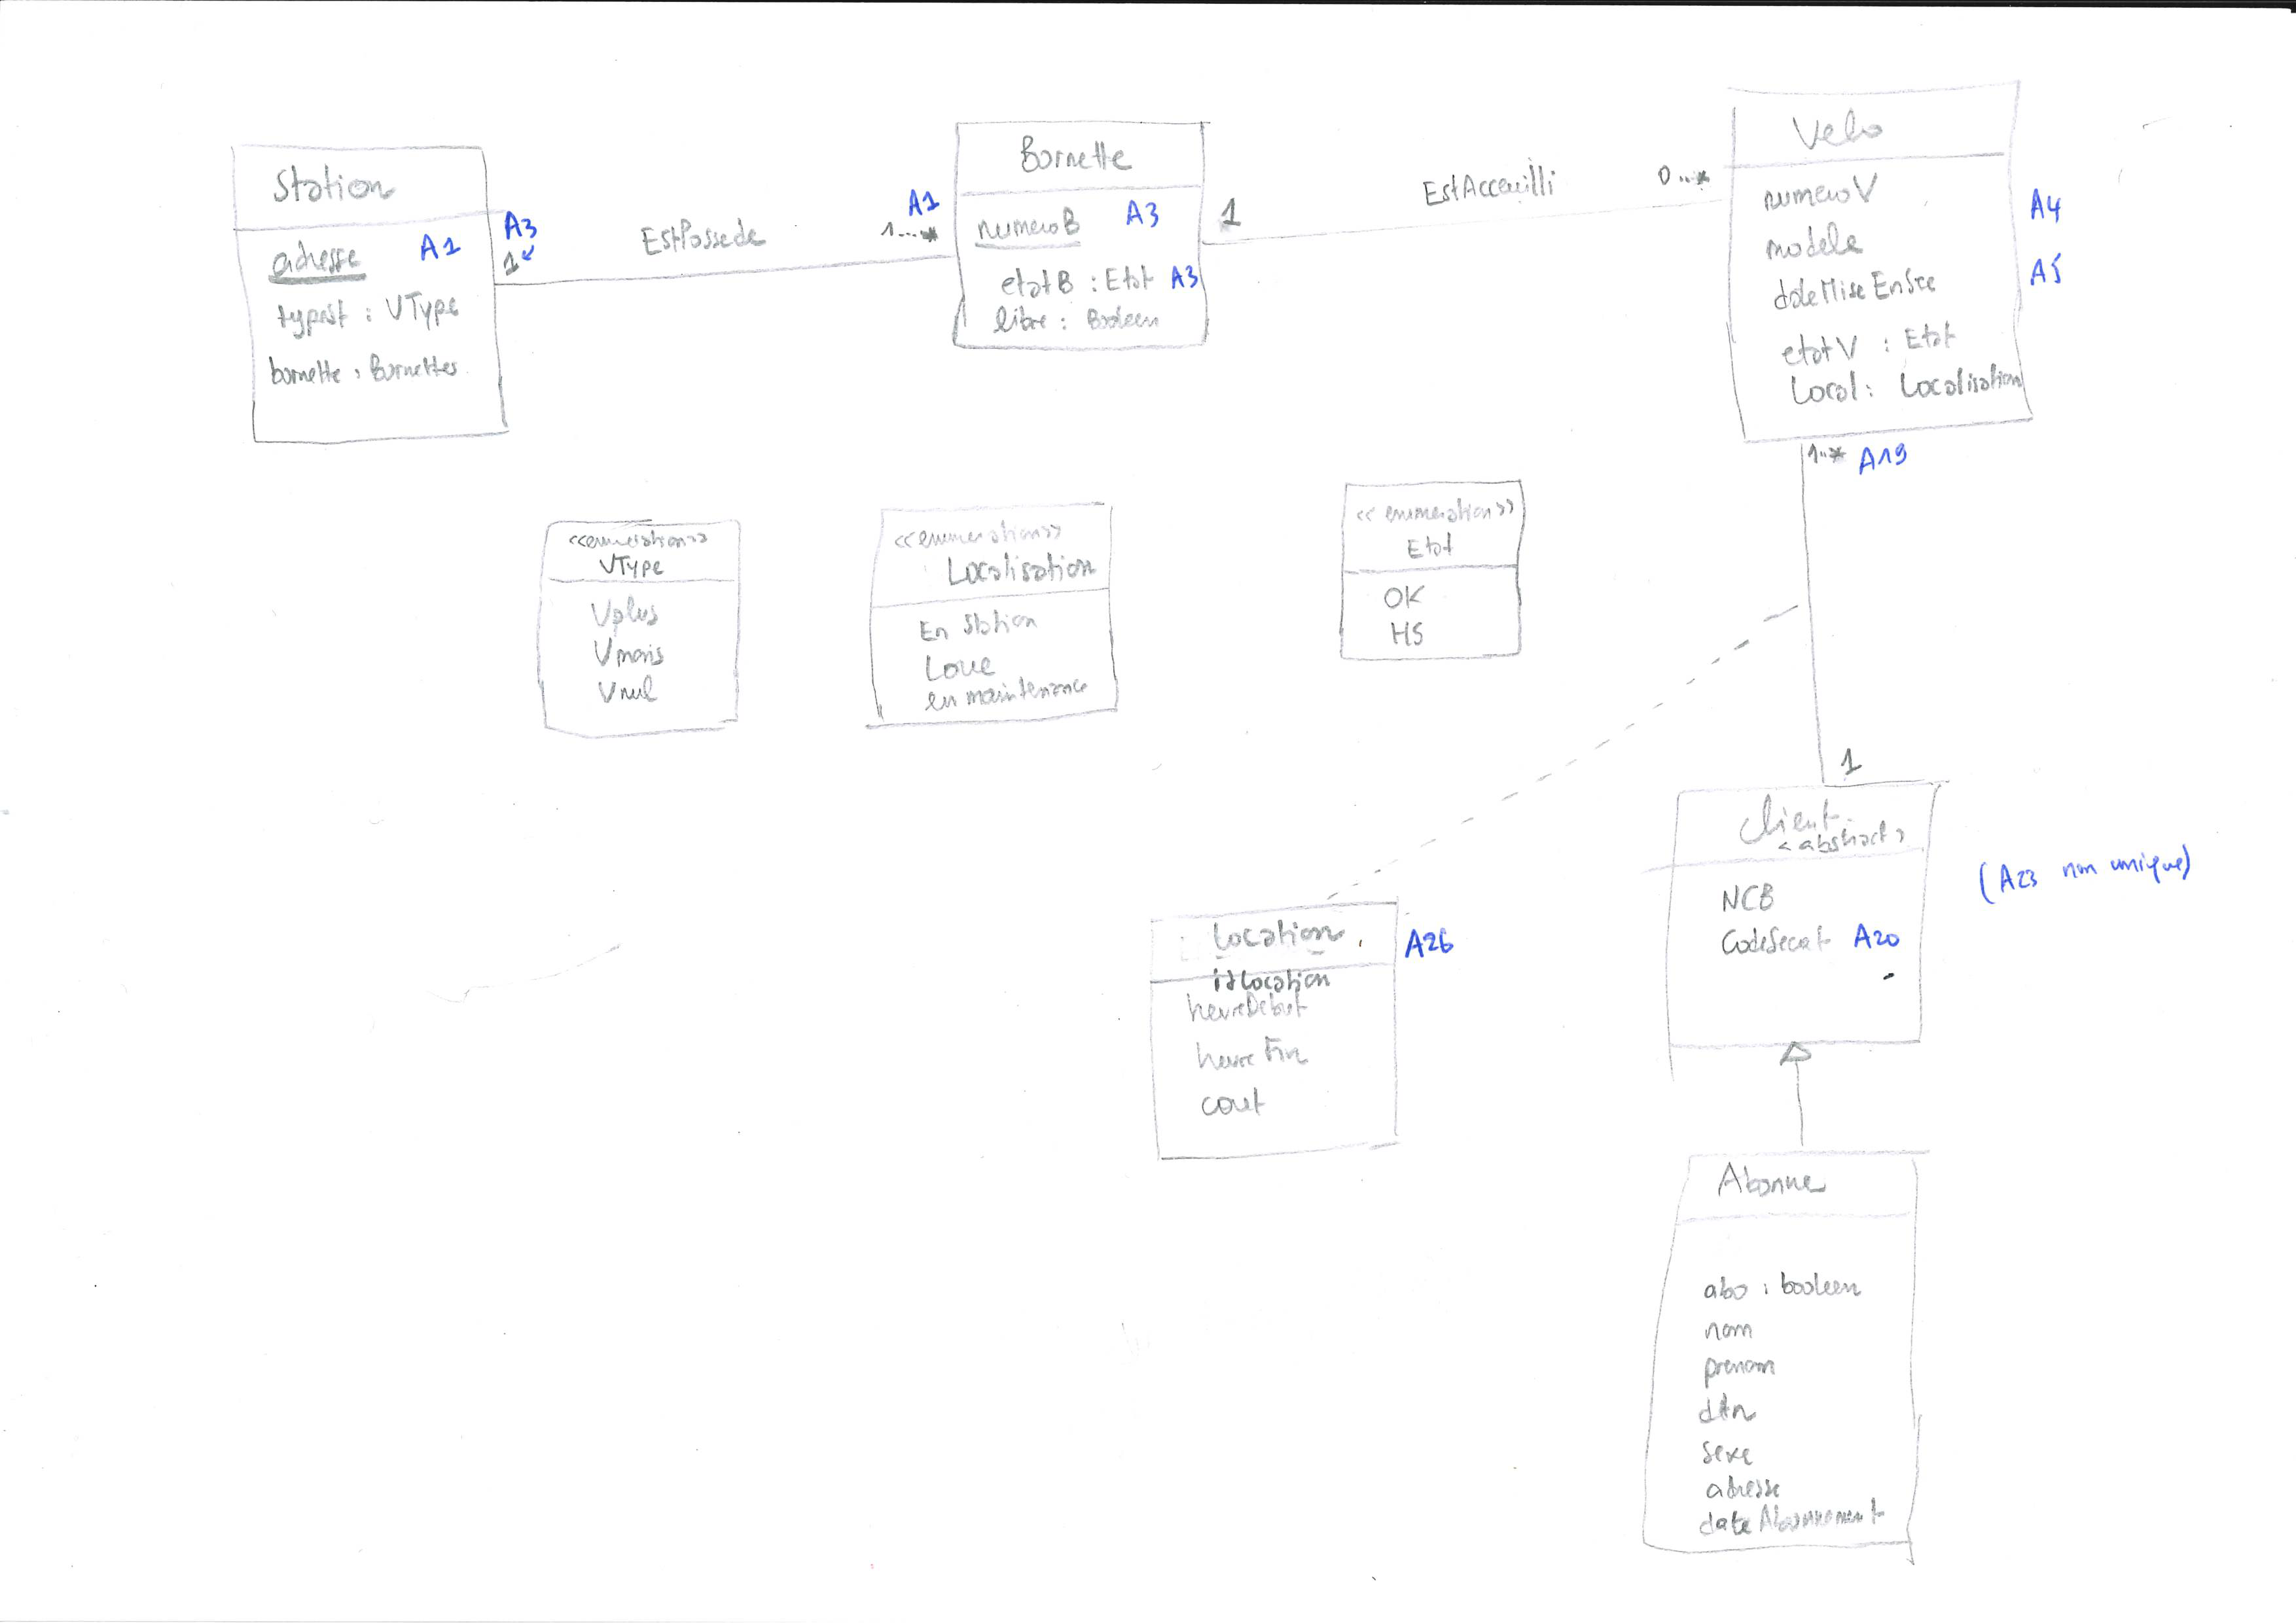 Station
adresse A1
typest : VType
bornette : Bornettes
A3
1
EstPossede
A1
1...*
Bornette
numeroB A3
etatB : Etat A3
libre : Booleen
1
EstAccueilli
0...*
Velo
numeroV
modele
dateMiseEnSce
etatV : Etat
Local : Localisation
A4
A5
1..* A19
<<enumeration>>
VType
Vplus
Vmoins
Vnul
<<enumeration>>
Localisation
En Station
Loue
en maintenance
<<enumeration>>
Etat
OK
HS
1
Client
<abstract>
NCB
CodeSecret A20
(A23 non unique)
Location A26
idLocation
heureDebut
heureFin
cout
Abonne
abo : booleen
nom
prenom
dtn
sexe
adresse
dateAbonnement